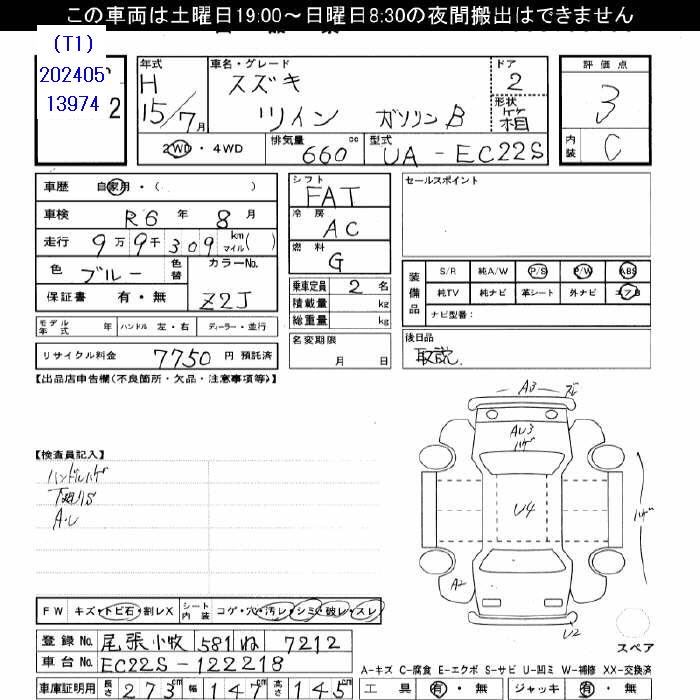 この車両は土曜日19:00～日曜日8:30の夜間搬出はできません
(T1)
202405
13974
2
年式 H 15/7月
車名・グレード スズキ ツイン ガソリンB
ドア 2
形状 箱
2WD・4WD
排気量 660 cc
型式 UA-EC22S
評価点 3
内装 C
車歴 自家用・( )
車検 R6年 8月
走行 9万9千309 km マイル( )
色 ブルー 色替
カラーNo. Z2J
保証書 有・無
モデル年式 年 ハンドル 左・右 ディーラー・並行
リサイクル料金 7750 円 預託済
シフト FAT
冷房 AC
燃料 G
乗車定員 2 名
積載量 kg
総重量 kg
名変期限 月 日
セールスポイント
装備品
S/R 純A/W P/S P/W ABS
純TV 純ナビ 革シート 外ナビ エアB
ナビ型番:
後日品
取説
【出品店申告欄(不良箇所・欠品・注意事項等)】
【検査員記入】
ハンドルハゲ
下廻りS
A.U
A3
AU3
ハゲ
U4
ハゲ
A2
U2
スペア
FW キズ・トビ石・割レX シート内装 コゲ・穴・汚レ・シミ・破レ・スレ
登録No. 尾張小牧 581 ぬ 7212
車台No. EC22S-122218
車庫証明用 長さ 273cm 幅 147cm 高さ 145cm
A-キズ C-腐食 E-エクボ S-サビ U-凹ミ W-補修 XX-交換済
工具 有・無 ジャッキ 有・無